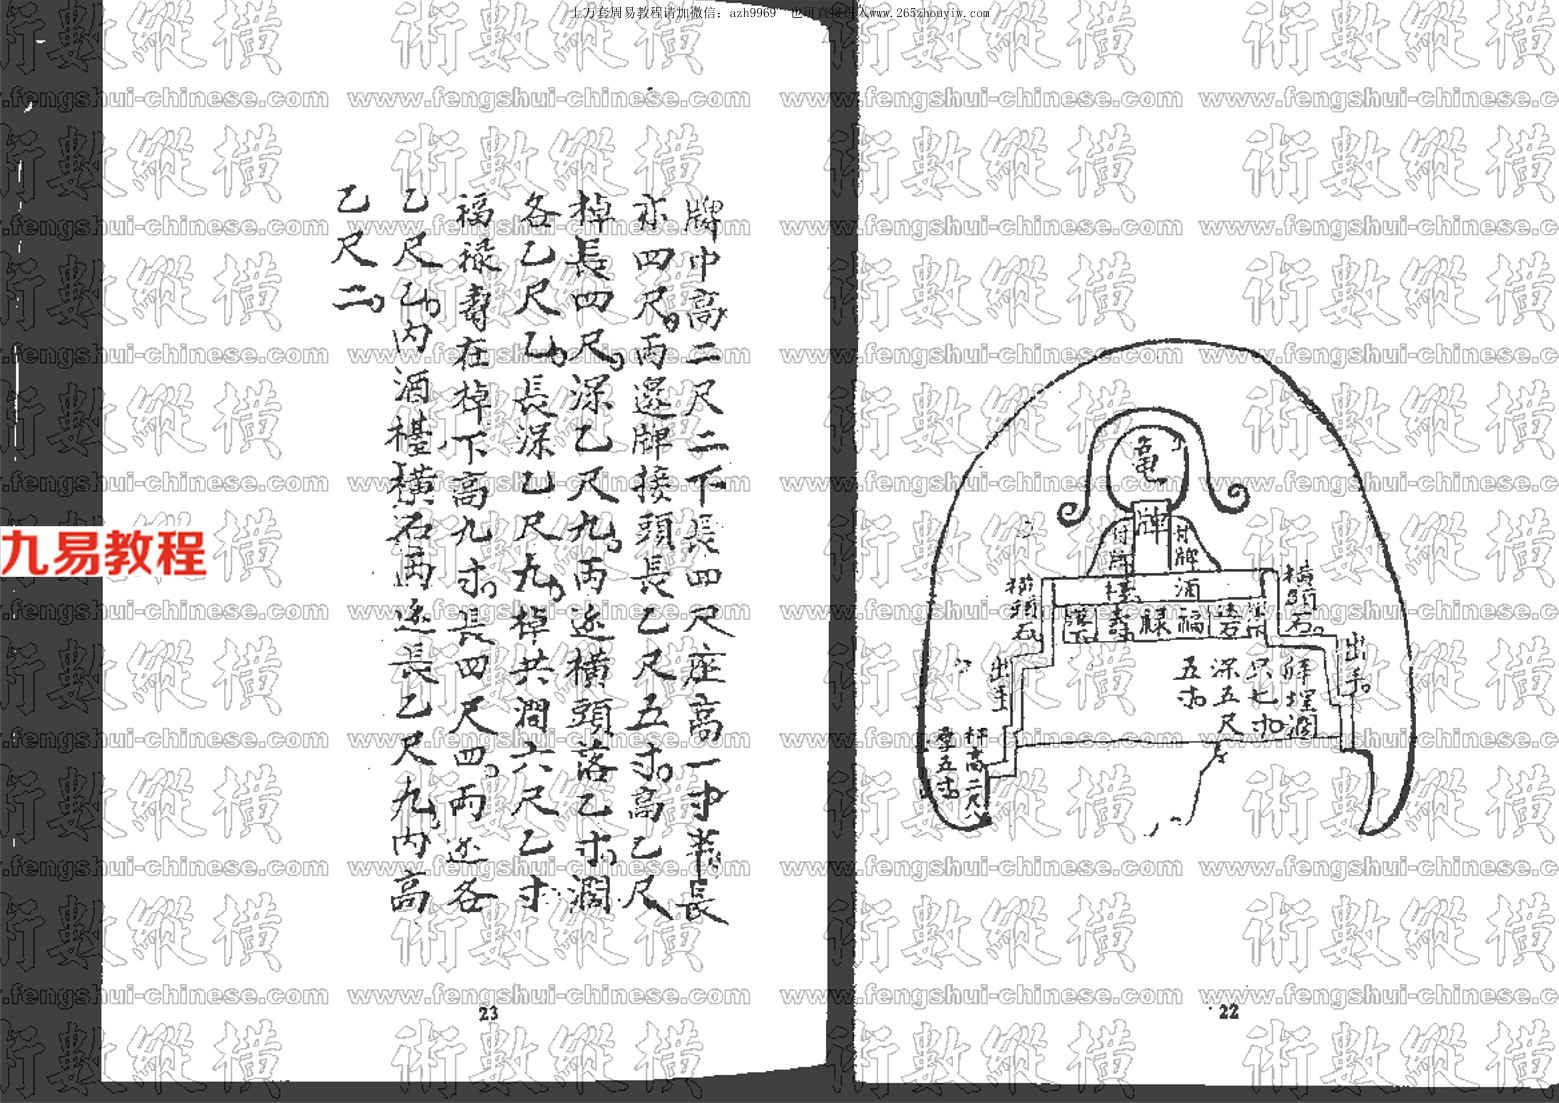 上万套周易教程请加微信：azh9969 也可直接进入www.265zhouyiw.com
術數縱橫
www.fengshui-chinese.com
九易教程
龜
牌
付牌
付牌
酒檯
福祿壽
橫頭石
橫頭石
出手
出手
深五尺
五寸
杆高二尺八
厚五寸
22
牌中高二尺二下長四尺座高一寸半長
亦四尺。兩邊牌接頭長乙尺五寸。高乙尺
棹長四尺。深乙尺九。兩边橫頭落乙寸。濶
各乙尺乙。長深乙尺九。棹共濶六尺乙寸
福祿壽在棹下高九寸。長四尺四。兩边各
乙尺乙。內酒檯橫石兩边長乙尺九。內高
乙尺二。
23